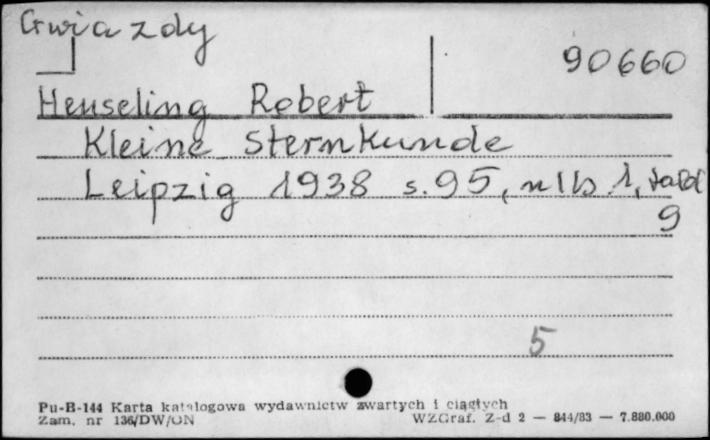 Gwiazdy
90660
Henseling Robert
Kleine Sternkunde
Leipzig 1938 s. 95, nlb 1, tabl
9
5
Pu-B-144 Karta katalogowa wydawnictw zwartych i ciągłych
Zam. nr 136/DW/ON WZGraf. Z-d 2 — 844/83 — 7.880.000